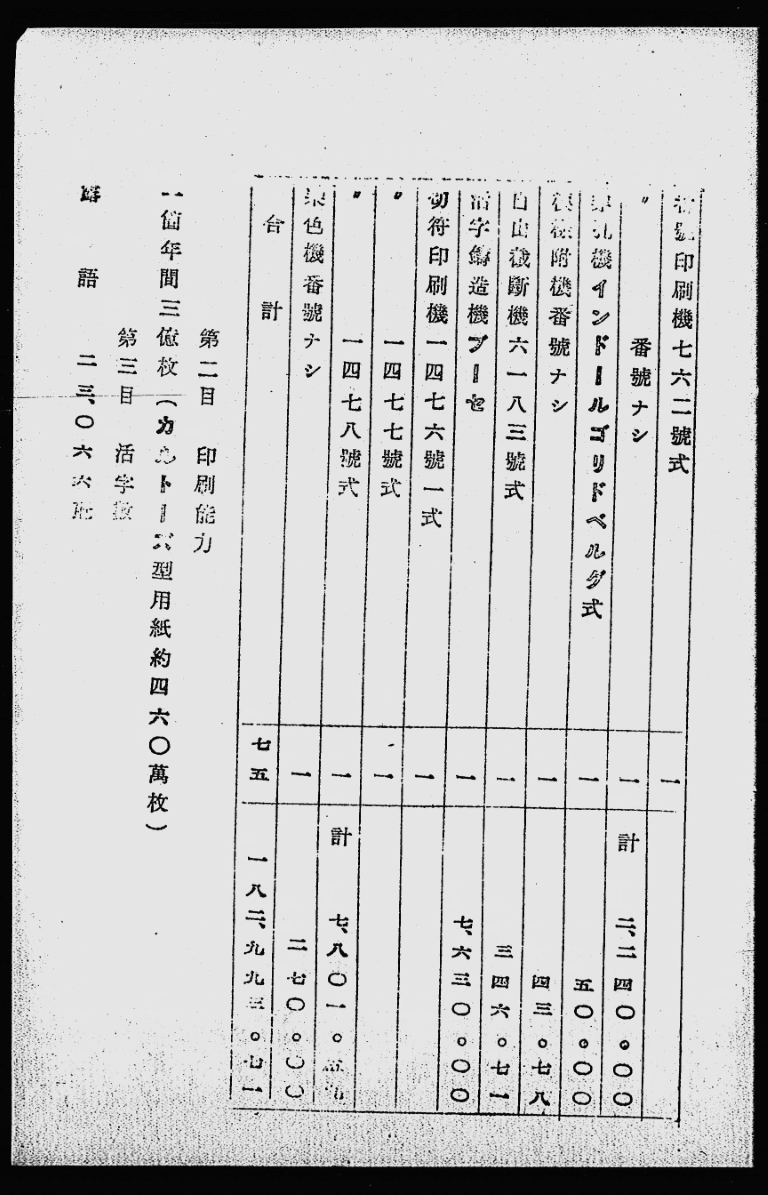 番號印刷機七六二號式 一
〃 番號ナシ 一 計 二、二四〇。〇〇
機インドールゴリドベルグ式 一 五〇。〇〇
附機番號ナシ 一 四三。七八
自由截斷機六一八三號式 一 三四六。七一
活字鑄造機ブーセ 一 七、六三〇。〇〇
切符印刷機一四七六號一式 一
〃 一四七七號式 一
〃 一四七八號式 一 計 七、八〇一。
染色機番號ナシ 一 二七〇。〇〇
合計 七五 一八二、九九三。七一
第二目 印刷能力
一箇年間三億枚(カルトーズ型用紙約四六〇萬枚)
第三目 活字數
露語 二三、〇六六